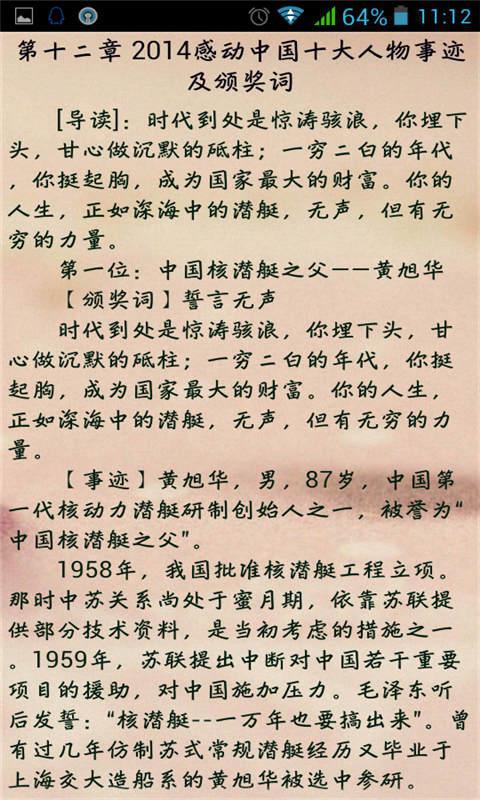 64% 11:12
第十二章 2014感动中国十大人物事迹
及颁奖词
[导读]：时代到处是惊涛骇浪，你埋下
头，甘心做沉默的砥柱；一穷二白的年代
，你挺起胸，成为国家最大的财富。你的
人生，正如深海中的潜艇，无声，但有无
穷的力量。
第一位：中国核潜艇之父——黄旭华
【颁奖词】誓言无声
时代到处是惊涛骇浪，你埋下头，甘
心做沉默的砥柱；一穷二白的年代，你挺
起胸，成为国家最大的财富。你的人生，
正如深海中的潜艇，无声，但有无穷的力
量。
【事迹】黄旭华，男，87岁，中国第
一代核动力潜艇研制创始人之一，被誉为“
中国核潜艇之父”。
1958年，我国批准核潜艇工程立项。
那时中苏关系尚处于蜜月期，依靠苏联提
供部分技术资料，是当初考虑的措施之一
。1959年，苏联提出中断对中国若干重要
项目的援助，对中国施加压力。毛泽东听
后发誓：“核潜艇--一万年也要搞出来”。曾
有过几年仿制苏式常规潜艇经历又毕业于
上海交大造船系的黄旭华被选中参研。